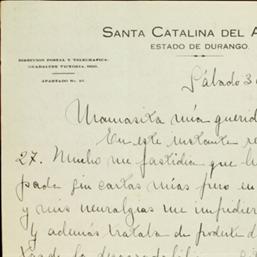 SANTA CATALINA DEL A
ESTADO DE DURANGO.
DIRECCION POSTAL Y TELEGRAFICA,
GUADALUPE VICTORIA, DGO.
APARTADO No.
Sábado 3
Mamasita mía querid
En este instante re
27. Mucho me fastidia que h
pada sin cartas mías pero en
y mis neuralgias me impidier
y además trataba de